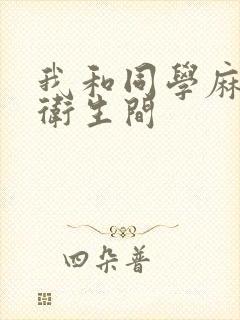 我和同學麻
衛生間
四朵普